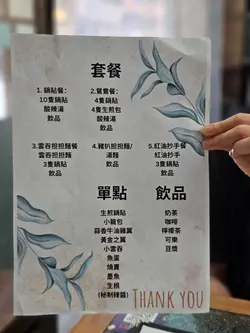 套餐
1. 鍋貼餐:
10隻鍋貼
酸辣湯
飲品
2.鴛鴦餐:
4隻鍋貼
4隻生煎包
酸辣湯
飲品
3.雲吞担担麵餐
雲吞担担麵/
3隻鍋貼
飲品
4.豬扒担担麵/
湯麵
飲品
5.紅油抄手餐
紅油抄手
3隻鍋貼
飲品
單點
生煎鍋貼
小籠包
蒜香牛油雞翼
黃金之翼
小雲吞
魚蛋
燒賣
墨魚
生根
(秘制辣醬)
飲品
奶茶
咖啡
檸檬茶
可樂
豆漿
THANK YOU